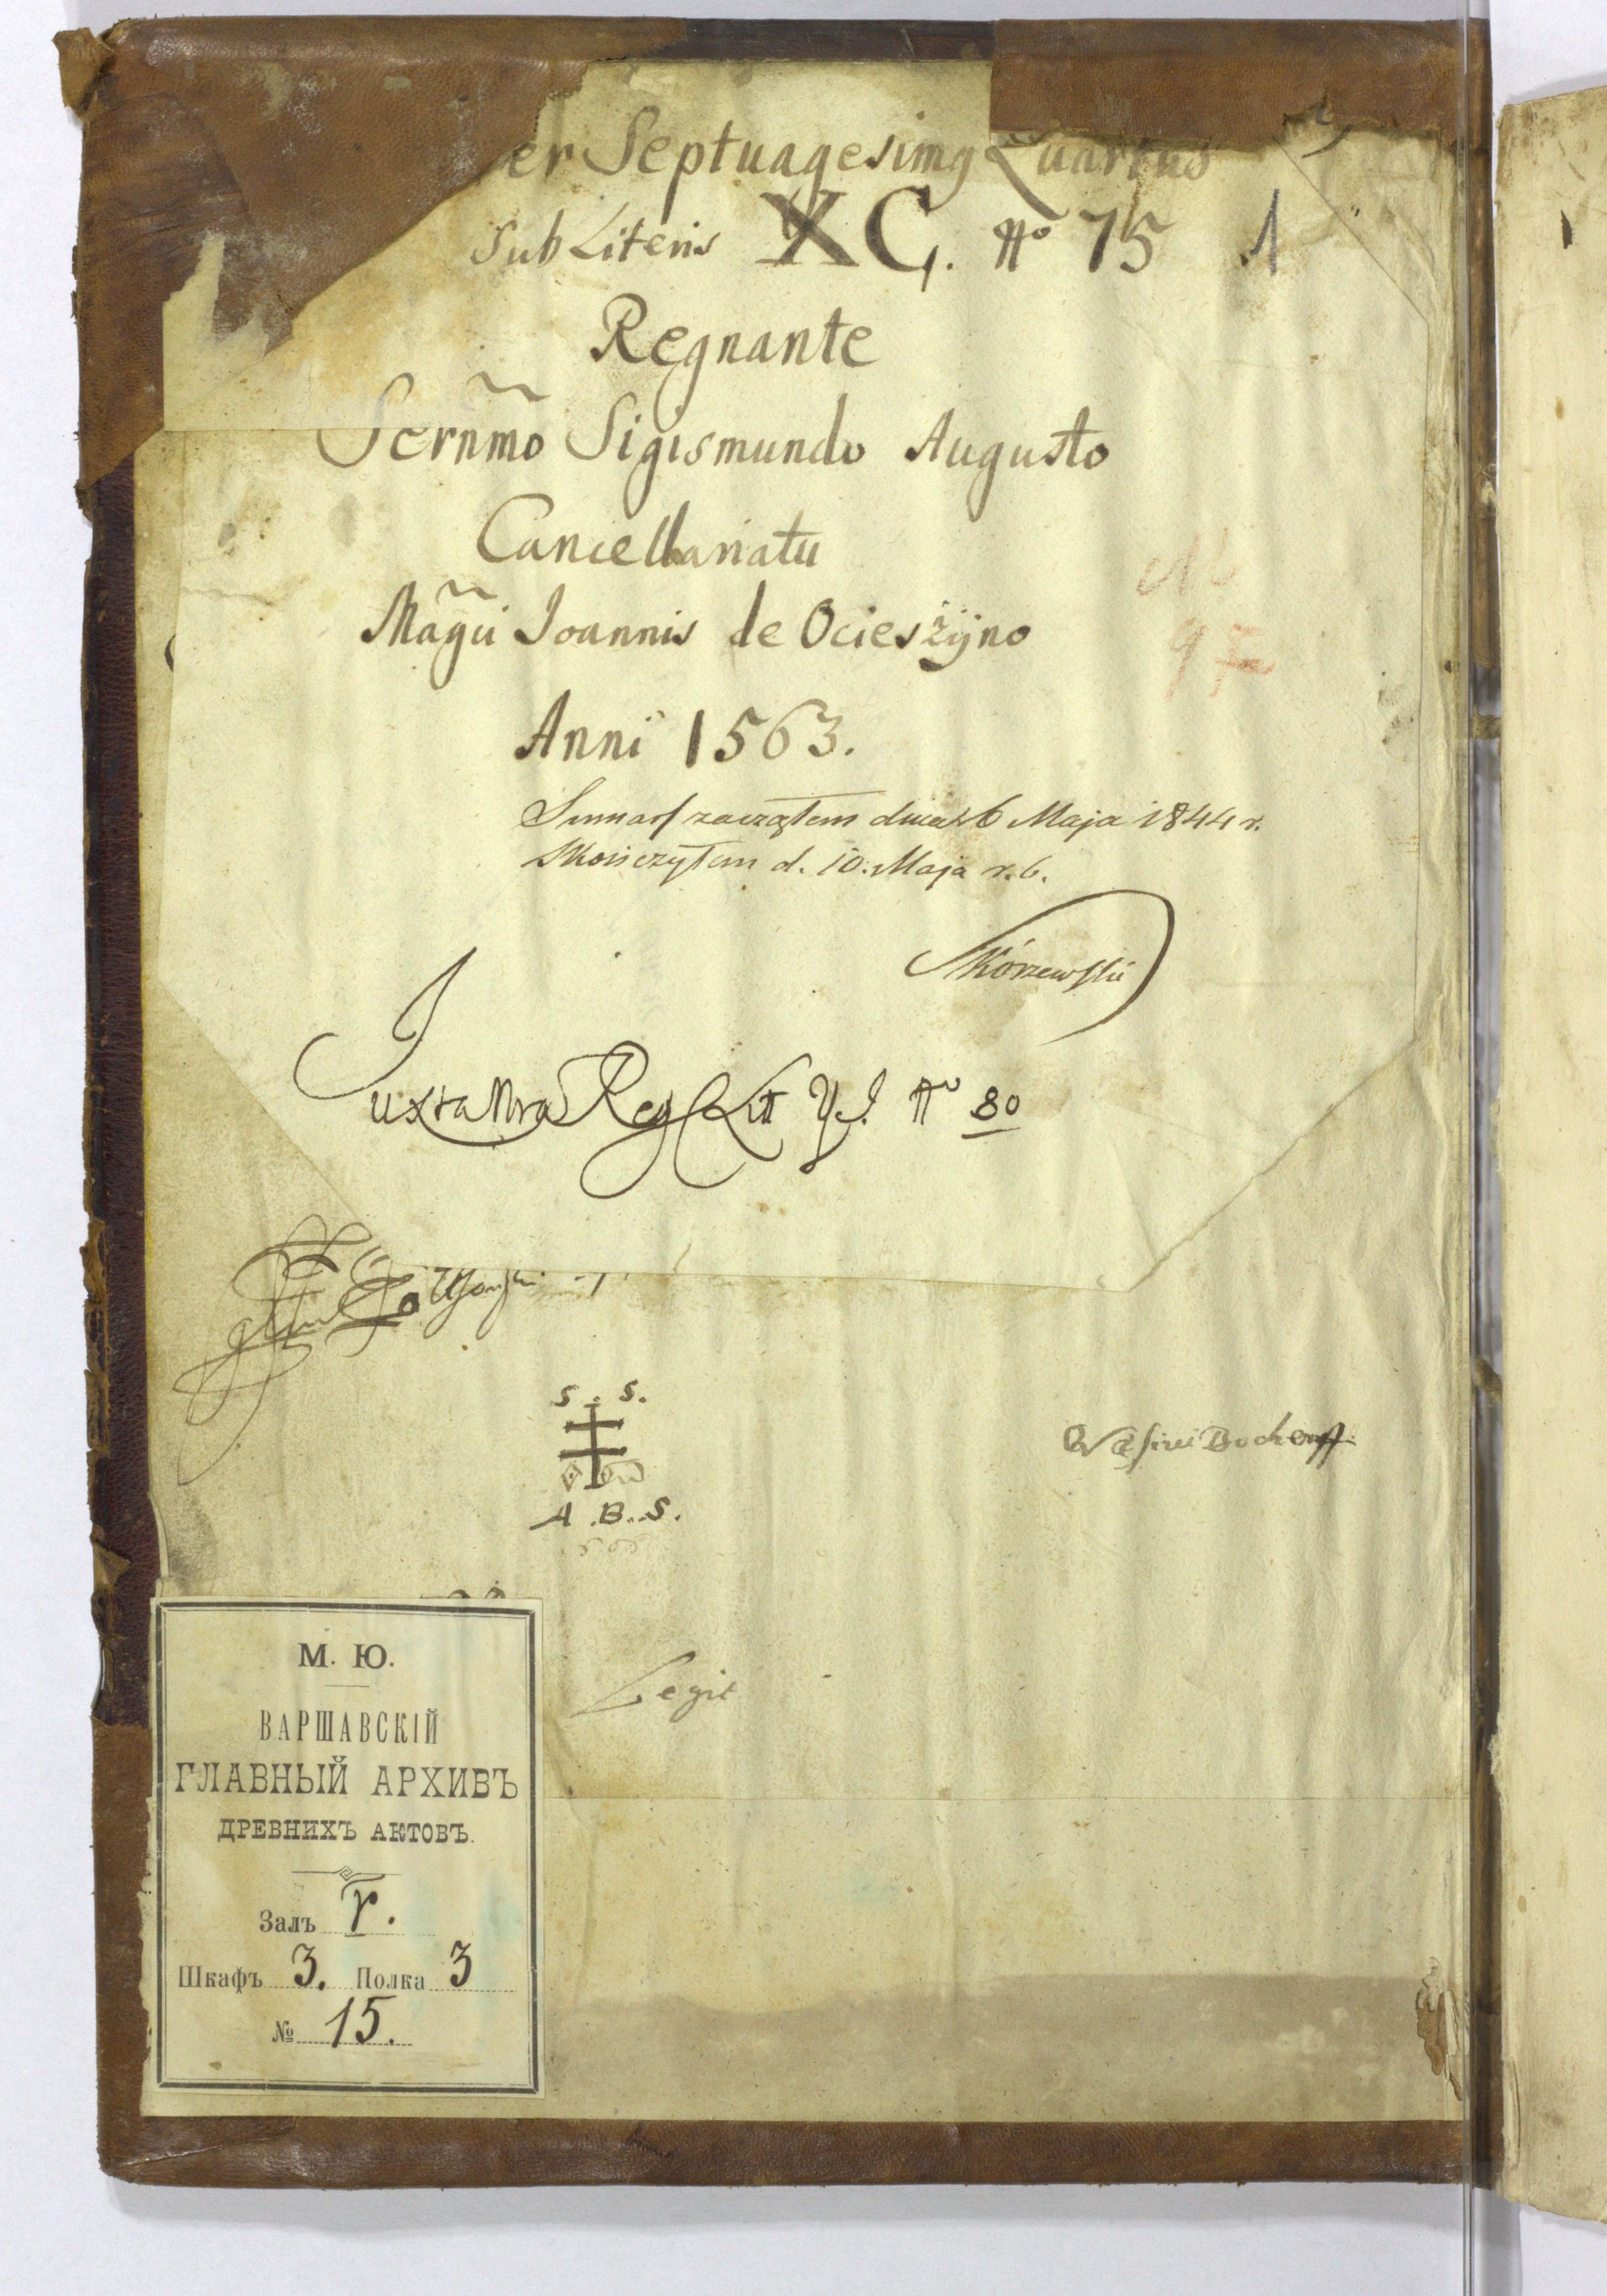 er Septuagesimꝯ Quartus
Sub Literis XC. Nº 75 1
Regnante
Serñmo Sigismundo Augusto
Cancellariatu
Mag̃ci Joannis de Ociesżyno
Anni 1563.
Sumar zacząłem dnia 6 Maja 1844 r.
Skończyłem d. 10. Maja r. b.
Skórzewski
Juxta Reg Lit Y.J. Nº 80
S. S.
A. B. S.
Legit
М. Ю.
ВАРШАВСКІЙ
ГЛАВНЫЙ АРХИВЪ
ДРЕВНИХЪ АКТОВЪ.
Залъ
Шкафъ 3. Полка 3
№ 15.